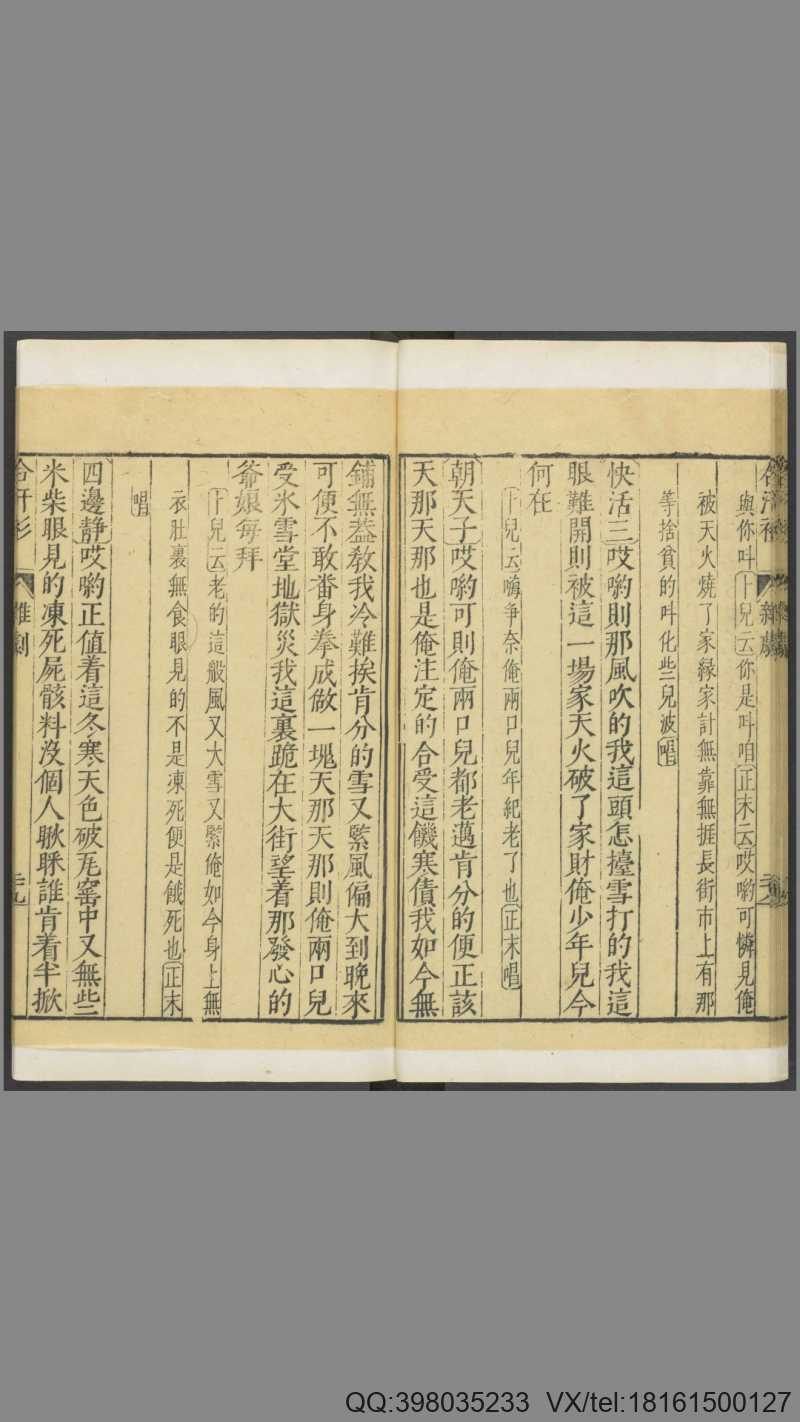 與你叫卜兒云你是叫咱正末云哎喲可憐見俺
被天火燒了家緣家計無靠無捱長街市上有那
等捨貧的叫化些兒波唱
快活三哎喲則那風吹的我這頭怎擡雪打的我這
眼難開則被這一場家天火破了家財俺少年兒今
何在
卜兒云嗨爭奈俺兩口兒年紀老了也正末唱
朝天子哎喲可則俺兩口兒都老邁肯分的便正該
天那天那也是俺注定的合受這饑寒債我如今無
鋪無蓋敎我冷難挨肯分的雪又緊風偏大到晚來
可便不敢番身拳成做一塊天那天那則俺兩口兒
受氷雪堂地獄災我這裏跪在大街望着那發心的
爺娘每拜
卜兒云老的這般風又大雪又緊俺如今身上無
衣肚裏無食眼見的不是凍死便是餓死也正末
唱
四邊靜哎喲正値着這冬寒天色破瓦窰中又無些
米柴眼見的凍死屍骸料沒個人瞅睬誰肯着半掀
合汗衫 雜劇
QQ:398035233 VX/tel:18161500127